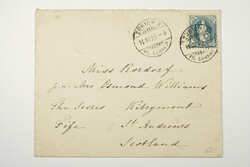 ZÜRICH
Miss Rordorf
p. a. Mrs Osmond Williams
The Scores Kilrymont
Fife St Andrews
Scotland